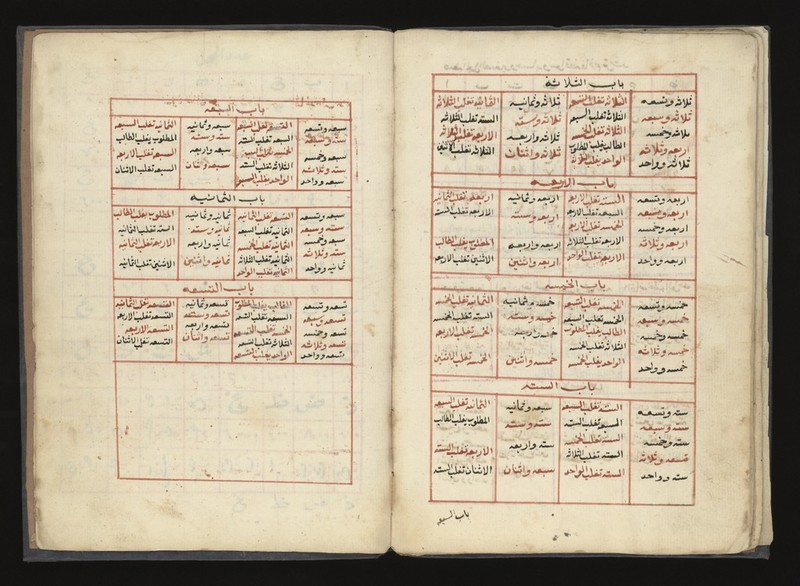 باب الثلاثة
ثلاثه وتسعه الثلاثه تغلب التسعه ثلاثه وثمانيه الثمانيه تغلب الثلاثه
ثلاثة وسبعه الثلاثة تغلب السبعه ثلاثه وسته الستة تغلب الثلاثه
ثلاثه وخمسه الثلاثه تغلب الخمسه ثلاثه واربعه الاربعه تغلب الثلاثه
وثلاثه الطالب يغلب المطلوب ثلاثة واثنان الثلاثة تغلب الاثنين
ثلاثة وواحد الواحد يغلب الثلاثة
باب الاربعه
اربعه وتسعه التسعه تغلب الاربعه اربعه وثمانيه الاربعه تغلب الثمانيه
اربعه وسبعه السبعه تغلب الاربعه اربعه وسته الاربعه تغلب السته
اربعه وخمسه الخمسه تغلب الاربعه
اربعه وثلاثه الاربعه تغلب الثلاثه اربعه واربعه المطلوب يغلب الطالب
اربعه وواحد الاربعه تغلب الواحد اربعه واثنين الاثنين تغلب الاربعه
باب الخمسه
خمسه وتسعه الخمسه تغلب التسعه خمسه وثمانيه الثمانيه تغلب الخمسه
خمسه وسبعه الخمسه تغلب السبعه خمسه وسته السته تغلب الخمسه
خمسه وخمسه الطالب يغلب المطلوب خمسه واربعه الخمسه تغلب الاربعه
خمسه وثلاثه الثلاثه تغلب الخمسه
خمسه وواحد الواحد يغلب الخمسه خمسه واثنين الخمسه تغلب الاثنين
باب السته
سته وتسعه التسعه تغلب السته وثمانيه الثمانيه تغلب
سته وسبعه السبعه تغلب السته سته وسته المطلوب يغلب الطالب
سته وخمسه السته تغلب الخمسه سته واربعه
وثلاثه السته تغلب الثلاثه الاربعه تغلب السته
سته وواحد السته تغلب الواحد واثنان الاثنان تغلب السته
باب السبعه
باب السبعه
سبعه وتسعه السبعه تغلب التسعه سبعه وثمانيه الثمانيه تغلب السبعه
سبعه تغلب السته وسته المطلوب يغلب الطالب
سبعه وخمسه الخمسه تغلب السبعه سبعه واربعه السبعه تغلب الاربعه
وثلاثه الثلاثه تغلب السبعه سبعه واثنان السبعه تغلب الاثنان
سبعه وواحد الواحد يغلب السبعه
باب الثمانيه
وتسعه التسعه تغلب الثمانيه ثمانيه وثمانيه المطلوب يغلب الطالب
وسبعه الثمانيه تغلب السبعه ثمانيه وسته السته تغلب الثمانيه
وخمسه الثمانيه تغلب الخمسه ثمانيه واربعه الاربعه تغلب الثمانيه
وثلاثه الثمانيه تغلب الثلاثه ثمانيه واثنين الاثنين تغلب الثمانيه
ثمانيه وواحد الثمانيه تغلب الواحد
باب التسعه
تسعه وتسعه الطالب يغلب المطلوب تسعه وثمانيه التسعه تغلب الثمانيه
تسعه وسبعه السبعه تغلب التسعه تسعه وسته التسعه تغلب
تسعه وخمسه الخمسه تغلب التسعه تسعه واربعه التسعه الاربعه
تسعه وثلاثه الثلاثه تغلب التسعه تسعه واثنان التسعه تغلب الاثنان
تسعه وواحد الواحد يغلب التسعه